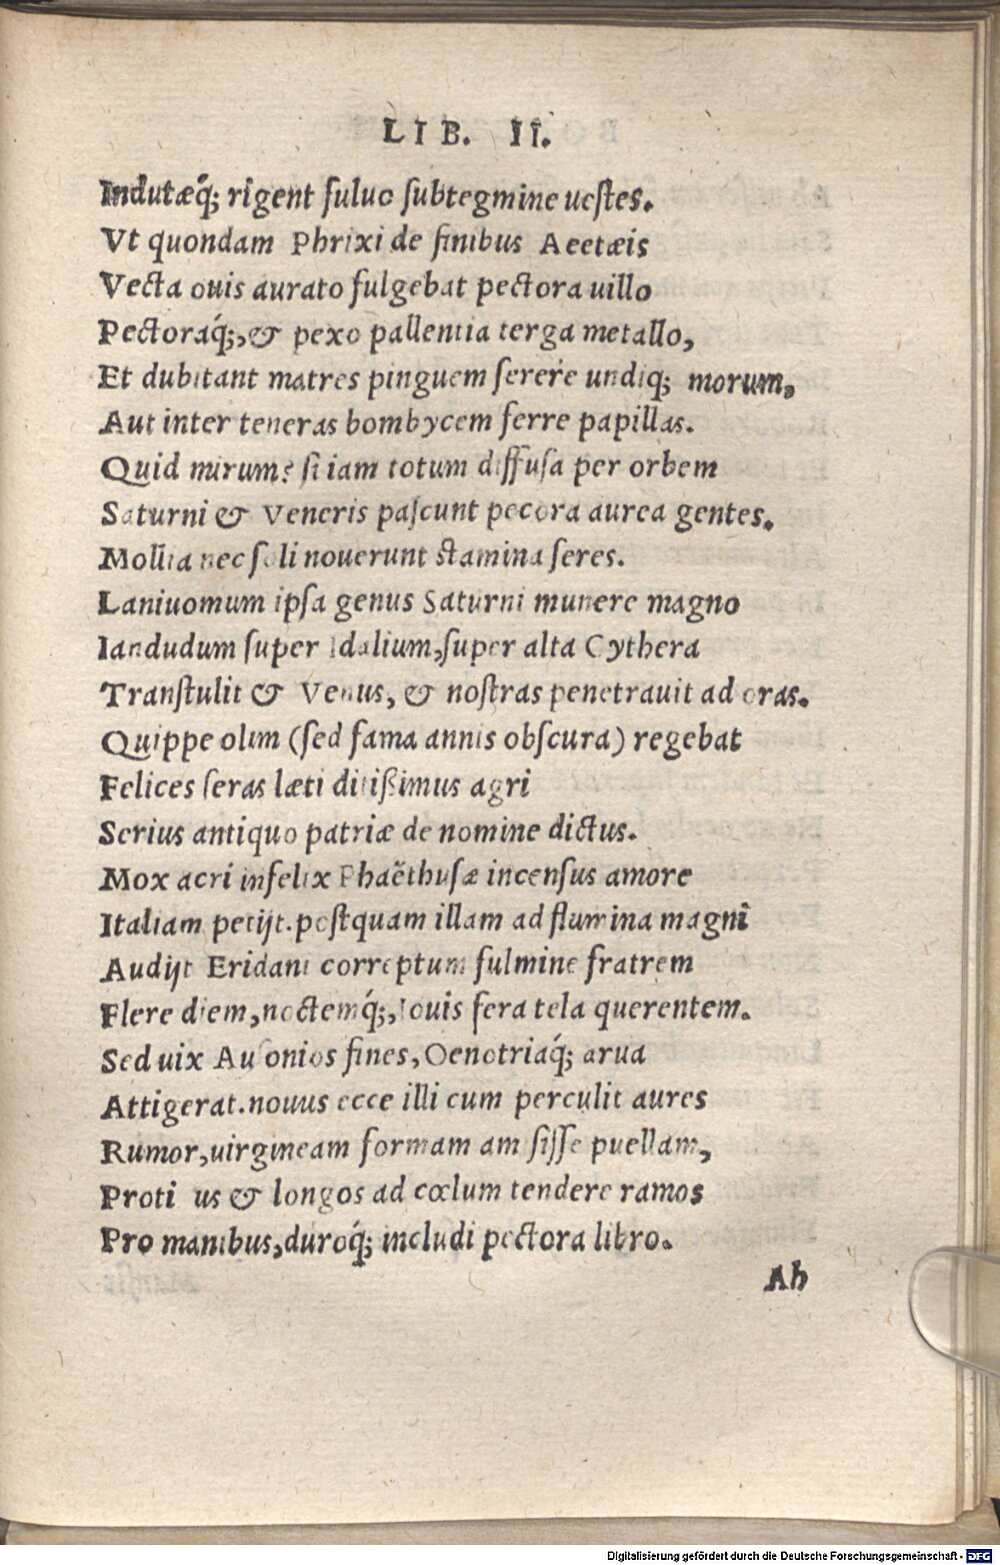 LIB. II.
Indutæq́; rigent fuluo subtegmine uestes.
Vt quondam Phrixi de finibus Aeetæis
Vecta ouis aurato fulgebat pectora uillo
Pectoraq́;, & pexo pallentia terga metallo,
Et dubitant matres pinguem serere undiq; morum,
Aut inter teneras bombycem ferre papillas.
Quid mirum? si iam totum diffusa per orbem
Saturni & Veneris pascunt pecora aurea gentes.
Mollia nec soli nouerunt stamina seres.
Laniuomum ipsa genus Saturni munere magno
Iandudum super Idalium, super alta Cythera
Transtulit & Venus, & nostras penetrauit ad oras.
Quippe olim (sed fama annis obscura) regebat
Felices seras læti ditißimus agri
Serius antiquo patriæ de nomine dictus.
Mox acri infelix Phaëthusæ incensus amore
Italiam petijt. postquam illam ad flumina magni
Audijt Eridani correptum fulmine fratrem
Flere diem, noctemq́;, Iouis fera tela querentem.
Sed uix Ausonios fines, Oenotriaq́; arua
Attigerat. nouus ecce illi cum perculit aures
Rumor, uirgineam formam amsisse puellam,
Proti us & longos ad cœlum tendere ramos
Pro manibus, duroq́; includi pectora libro.
Ah
Digitalisierung gefördert durch die Deutsche Forschungsgemeinschaft - DFG